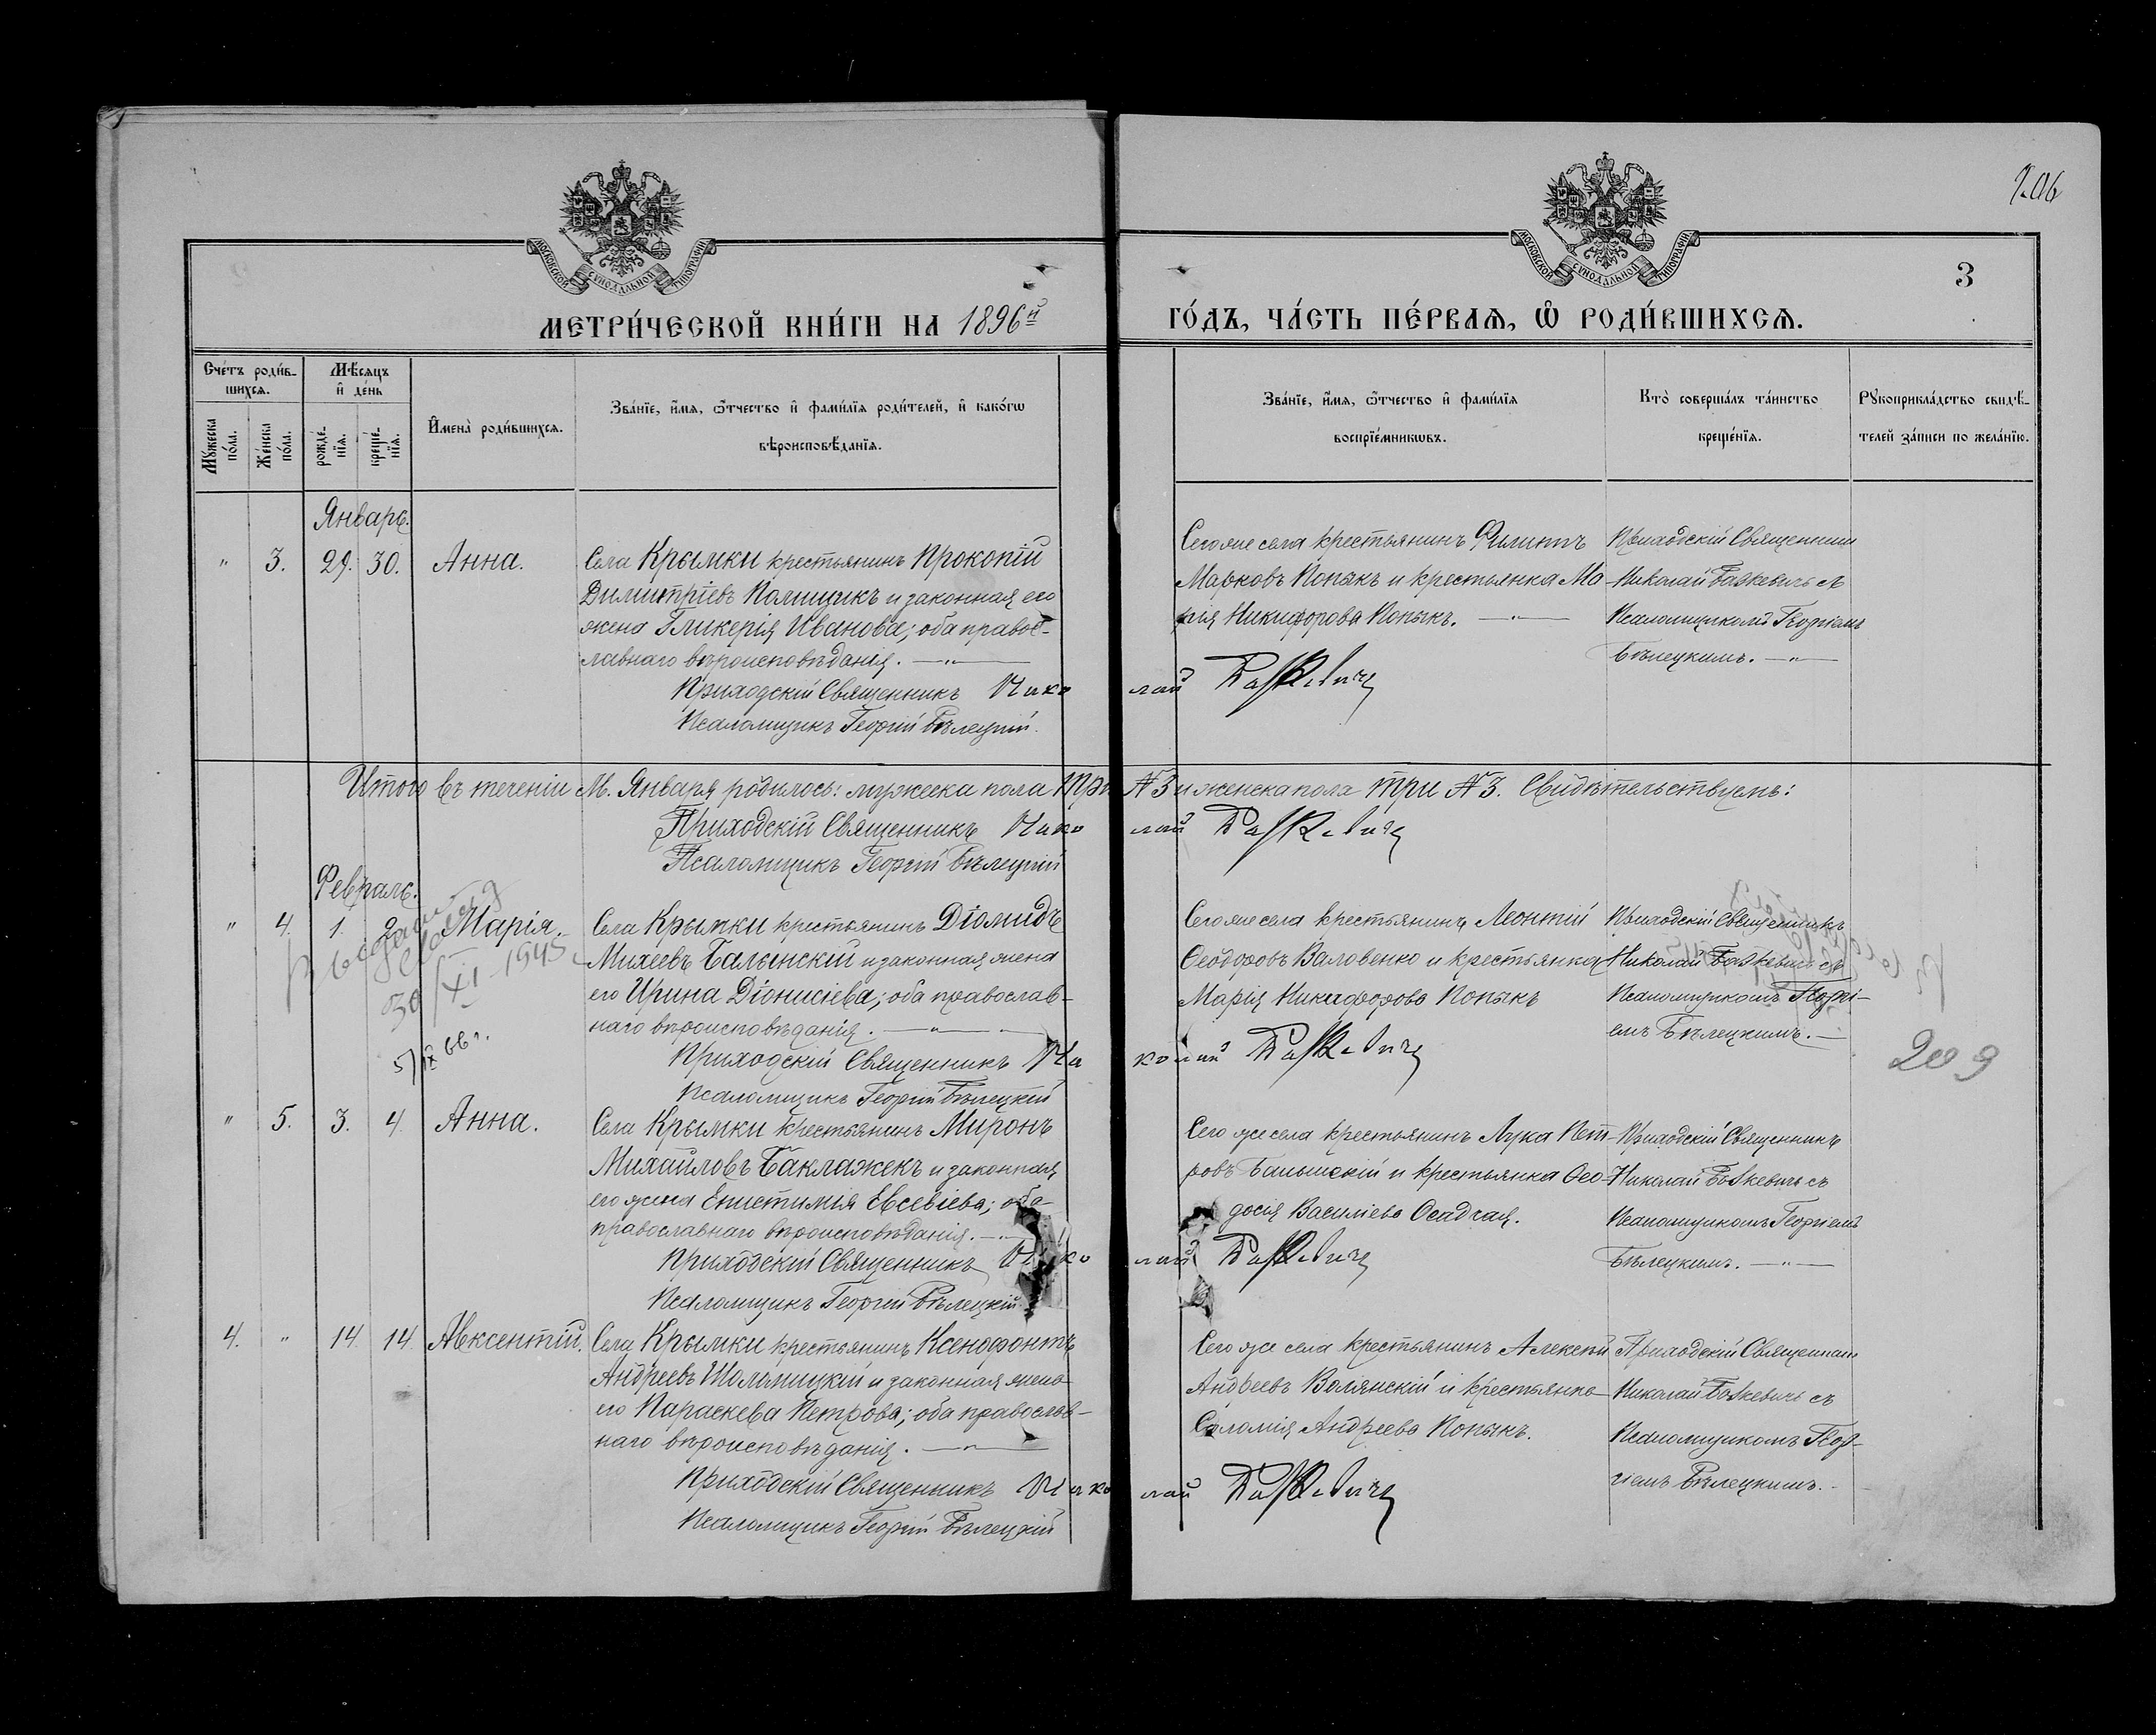 206
3
МОСКОВСКОЙ СѴНОДАЛЬНОЙ ТИПОГРАФІИ
МОСКОВСКОЙ СѴНОДАЛЬНОЙ ТИПОГРАФІИ
МЕТРИ́ЧЕСКОЙ КНИ́ГИ НА 1896й
ГО́ДЪ, ЧА́СТЬ ПЕ́РВАѦ, Ѡ҆ РОДИ́ВШИХСѦ.
Сче́тъ роди́в-
шихсѧ.
Мꙋ́жеска по́ла.
Же́нска по́ла.
Мѣ́сѧцъ
и҆ де́нь
рожде́-
нїѧ.
креще́-
нїѧ.
И҆мена̀ роди́вшихсѧ.
Зва́нїе, и҆́мѧ, ѻ҆́тчество и҆ фами́лїѧ роди́телей, и҆ како́гѡ
вѣроисповѣ́данїѧ.
Зва́нїе, и҆́мѧ, ѻ҆́тчество и҆ фами́лїѧ
воспрїе́мникѡвъ.
Кто̀ соверша́лъ та́инство
креще́нїѧ.
Рꙋкоприкла́дство свидѣ́-
телей за́писи по жела́нїю.
Январь.
" 3. 29. 30. Анна.
Села Крымки крестьянинъ Прокопій
Димитріевъ Полищукъ и законная его
жена Гликерія Иванова; оба правос-
лавнаго вѣроисповѣданія. — " —
Приходскій Священникъ Нико
лай Базкевичъ
Псаломщикъ Георгій Бѣлецкій.
Сего же села крестьянинъ Филиппъ
Марковъ Попыкъ и крестьянка Ма-
рія Никифорова Попыкъ. — " —
Приходскій Священникъ
Николай Базкевичъ съ
Псаломщикомъ Георгіемъ
Бѣлецкимъ. — " —
Итого въ теченіи М. Января родилось: мужеска пола три № 3 и женска пола три № 3. Свидѣтельствуемъ:
Приходскій Священникъ Николай Базкевичъ
Псаломщикъ Георгій Бѣлецкій
Февраль.
" 4. 1. 2. Марія.
30/XI-1945
5/IX 66 г.
Села Крымки крестьянинъ Діомидъ
Михеевъ Балынскій и законная жена
его Ирина Діонисіева; оба православ-
наго вѣроисповѣданія. — " —
Приходскій Священникъ Ни
колай Базкевичъ
Псаломщикъ Георгій Бѣлецкій
Сего же села крестьянинъ Леонтій
Ѳеодоровъ Валовенко и крестьянка
Марія Никифорова Попыкъ
Приходскій Священникъ
Николай Базкевичъ съ
Псаломщикомъ Георгі-
емъ Бѣлецкимъ. —
209
" 5. 3. 4. Анна.
Села Крымки крестьянинъ Миронъ
Михайловъ Баклажекъ и законная
его жена Епистимія Евсевіева; оба
православнаго вѣроисповѣданія. —
Приходскій Священникъ Нико
лай Базкевичъ
Псаломщикъ Георгій Бѣлецкій
Сего же села крестьянинъ Лука Пет-
ровъ Балынскій и крестьянка Ѳео-
досія Василіева Осадчая.
Приходскій Священникъ
Николай Базкевичъ съ
Псаломщикомъ Георгіемъ
Бѣлецкимъ. — " —
4. " 14 14 Авксентій.
Села Крымки крестьянинъ Ксенофонтъ
Андреевъ Шоломицкій и законная жена
его Параскева Петрова; оба православ-
наго вѣроисповѣданія. — " —
Приходскій Священникъ Нико
лай Базкевичъ
Псаломщикъ Георгій Бѣлецкій
Сего же села крестьянинъ Алексѣй
Андреевъ Волянскій и крестьянка
Саломія Андреева Попыкъ.
Приходскій Священникъ
Николай Базкевичъ съ
Псаломщикомъ Геор-
гіемъ Бѣлецкимъ. -